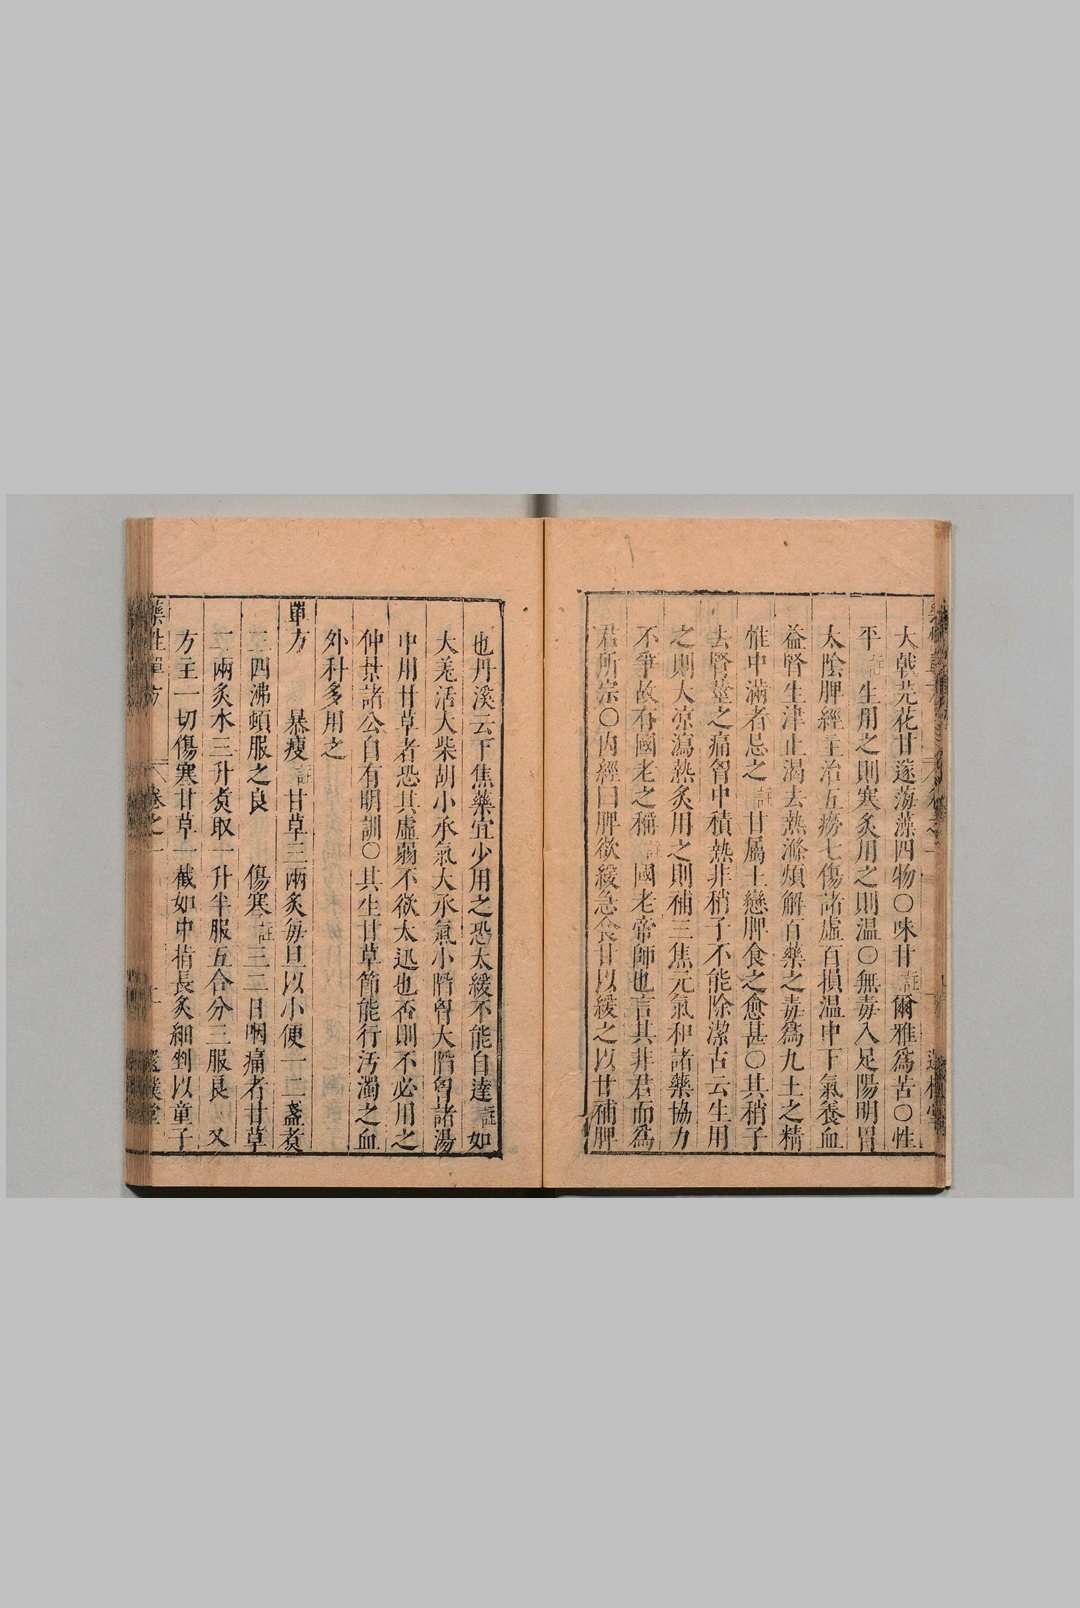 大戟芫花甘遂海藻四物〇味甘註爾雅爲苦〇性
平註生用之則寒炙用之則温〇無毒入足陽明胃
太陰脾經主治五癆七傷諸虛百損温中下氣養血
益腎生津止渴去熱滌煩解百藥之毒爲九土之精
惟中滿者忌之註甘屬土戀脾食之愈甚〇其稍子
去腎莖之痛胷中積熱非稍子不能除潔古云生用
之則大凉瀉熱炙用之則補三焦元氣和諸藥協力
不爭故有國老之稱註國老帝師也言其非君而爲
君所宗〇內經曰脾欲緩急食甘以緩之以甘補脾
也丹溪云下焦藥宜少用之恐太緩不能自達註如
大羗活大柴胡小承氣大承氣小䧟胷大䧟胷諸湯
中用甘草者恐其虛弱不欲太迅也否則不必用之
仲景諸公自有明訓〇其生甘草節能行汚濁之血
外科多用之
單方 暴瘦註甘草三兩炙每旦以小便一二盞煑
三四沸頓服之良 傷寒註三二日咽痛者甘草
二兩炙水三升煑取一升半服五合分三服良 又
方主一切傷寒甘草一截如中指長炙細剉以童子
藥性單方 卷之一 上 還樸堂